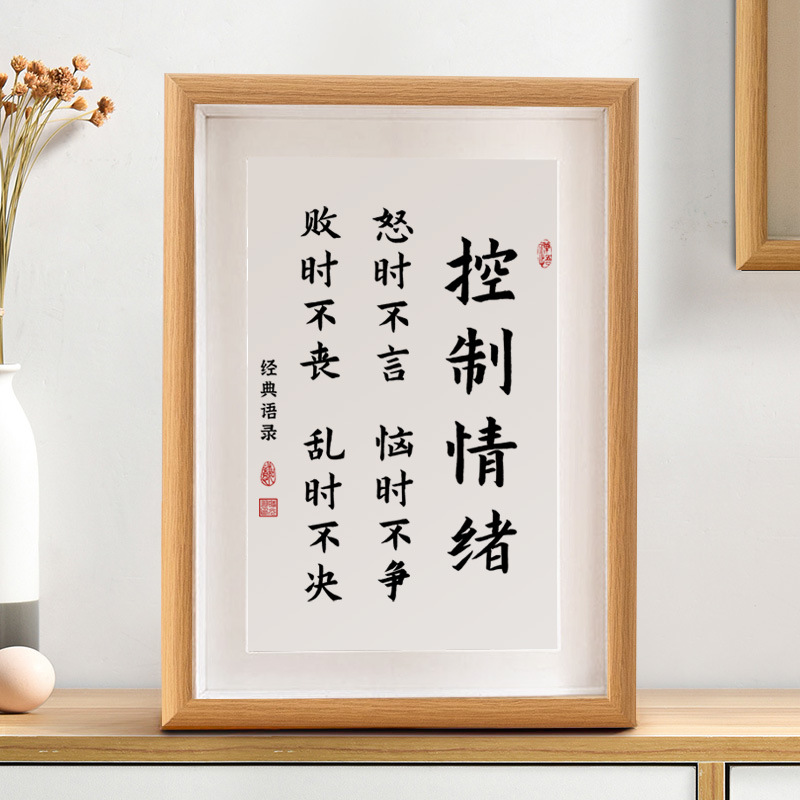 控制情绪
怒时不言 恼时不争
败时不丧 乱时不决
经典语录